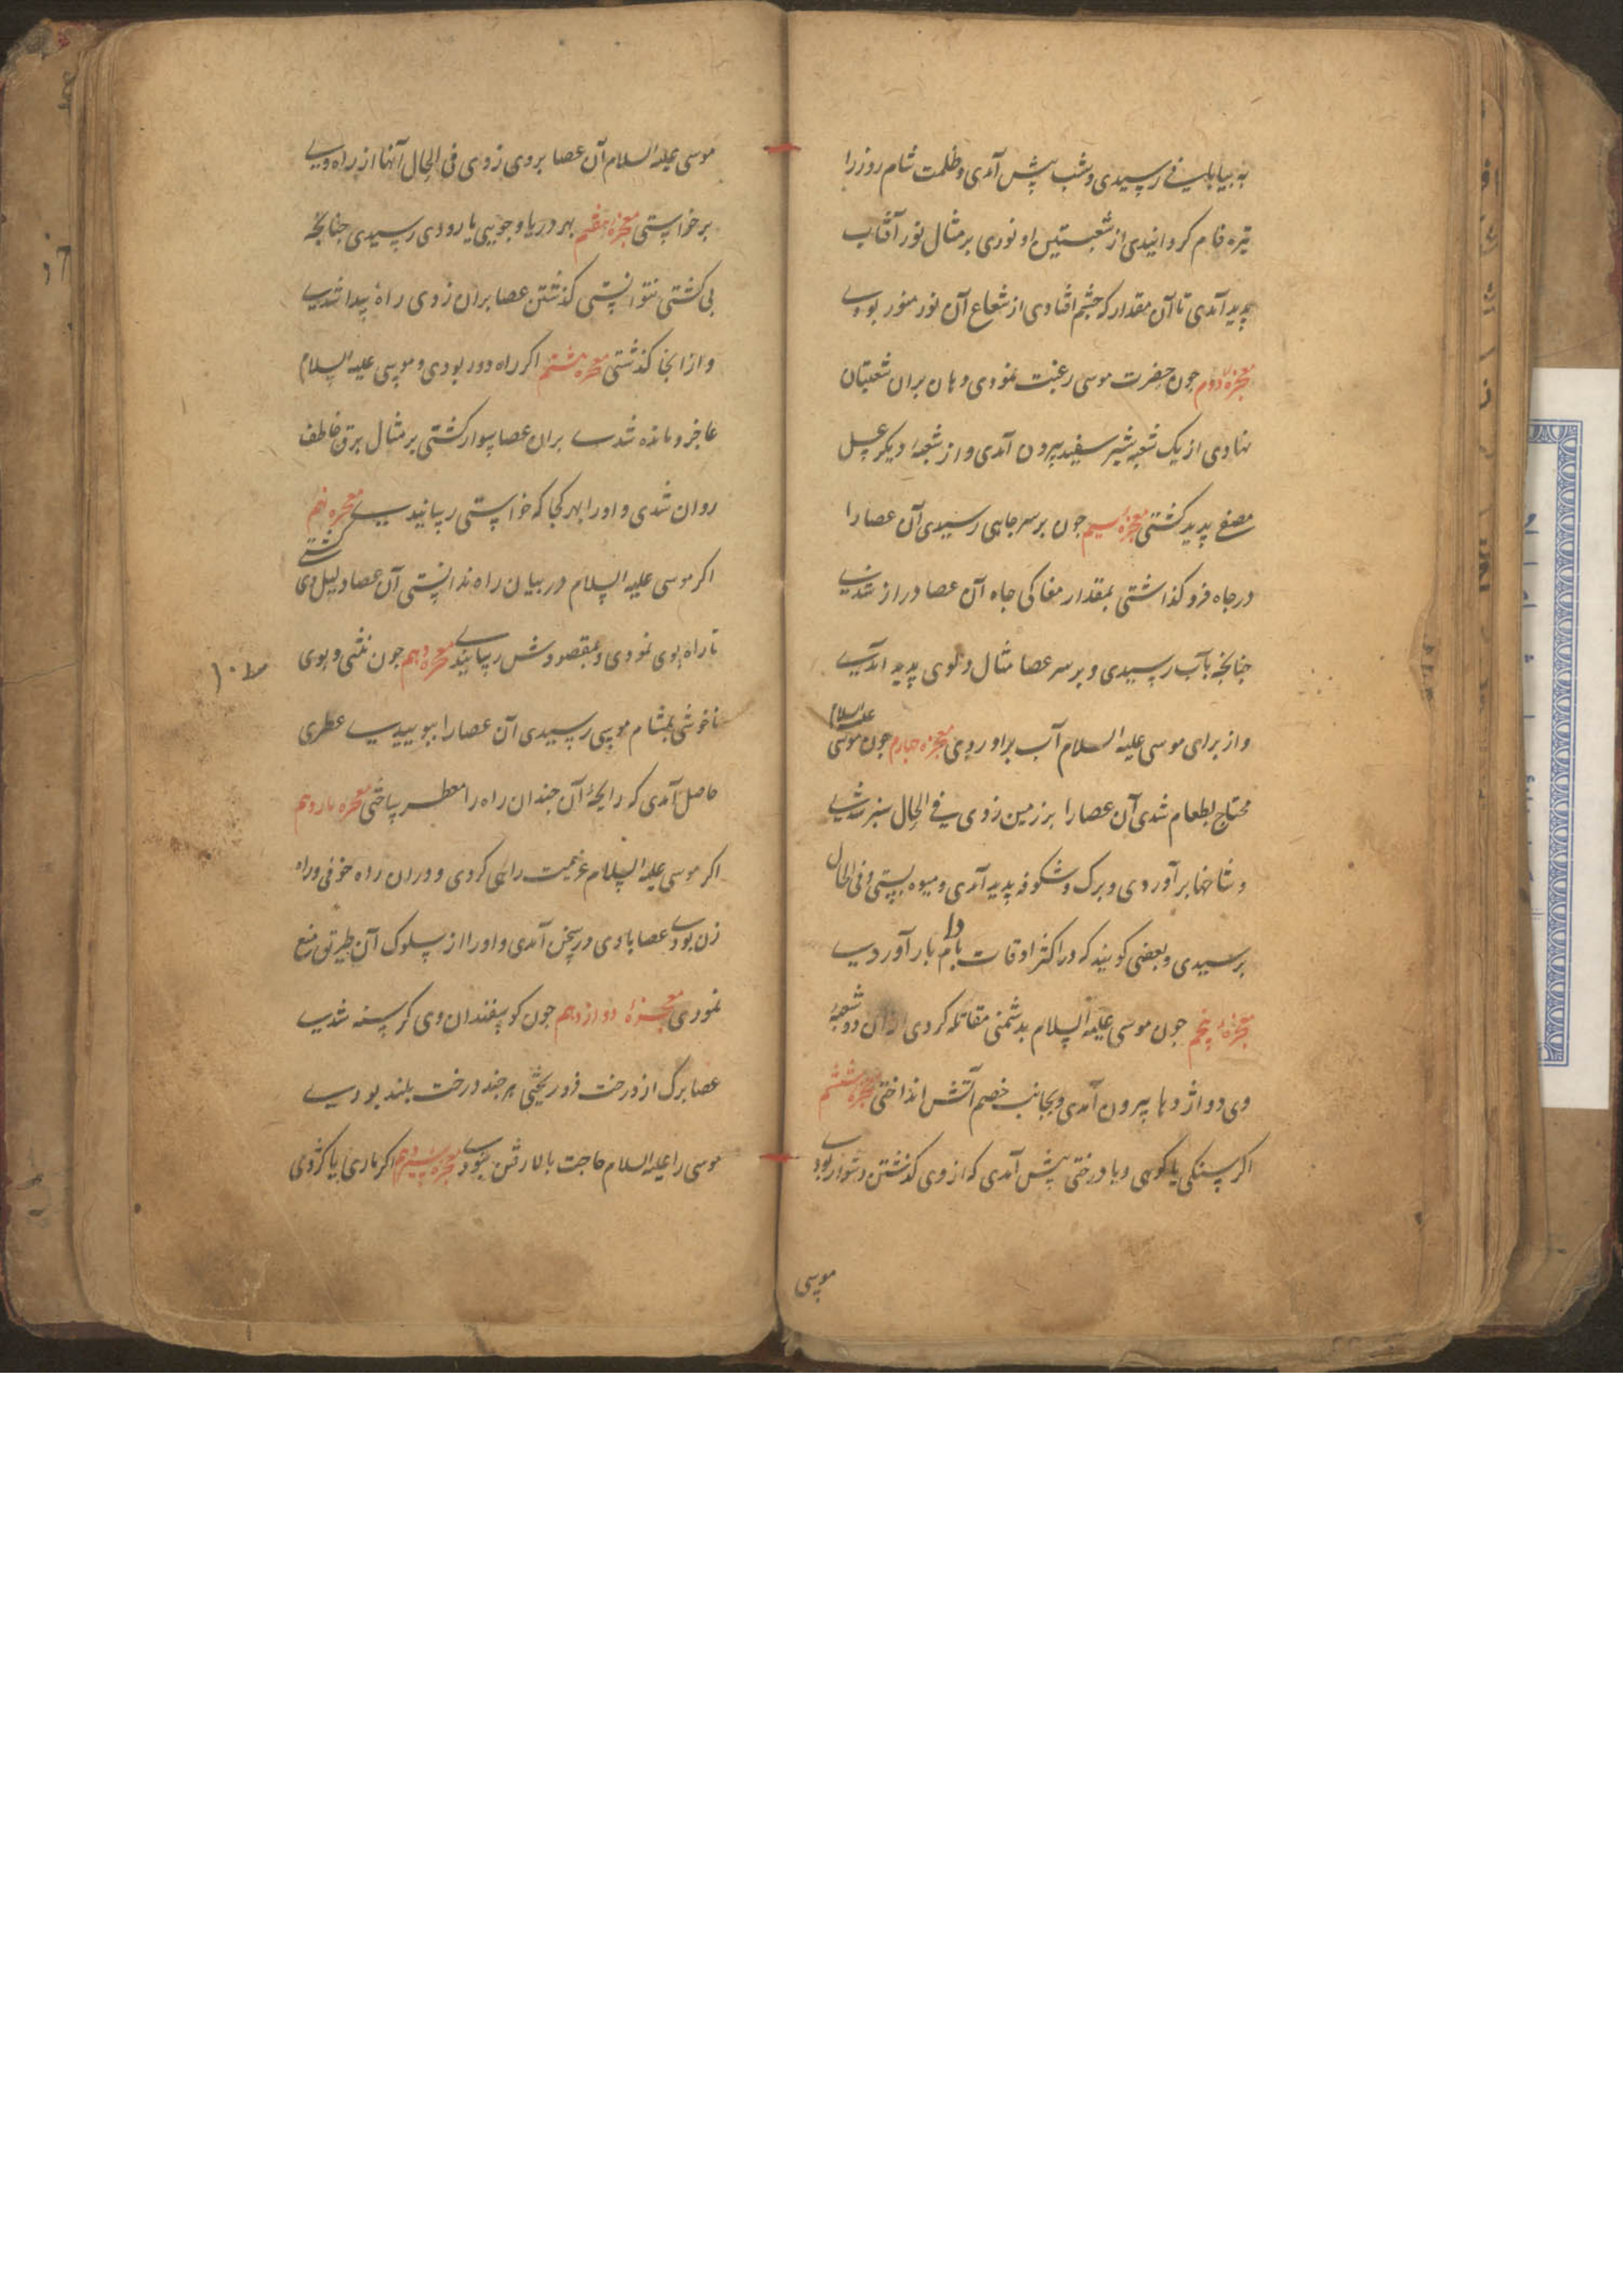 به بیابانی رسیدی و شب پیش آمدی و ظلمت شام روز را
تیره فام کردانیدی از شعبتین او نوری بر مثال نور آفتاب
پدید آمدی تا آن مقدار که چشم افتادی از شعاع آن نور منور بودی
معجزهٔ دوم جون حضرت موسی رغبت نمودی دهان بران شعبتان
نهادی از یک شعبه شیر سفید بیرون آمدی و از شعبهٔ دیکر عسل
مصفی پدید کشتی معجزهٔ سیم جون بر سر جاهی رسیدی آن عصا را
در جاه فرو کذاشتی بمقدار مغاکی جاه آن عصا دراز شدی
جنانجه بآب رسیدی و بر سر عصا مثال دلوی پدید آمدی
و از برای موسی علیه السلام آب براوردی معجزه جهارم جون موسی علیه السلام
محتاج بطعام شدی آن عصا را بر زمین زدی فی الحال سبز شدی
و شاخها بر آوردی و برک و شکوفه پدید آمدی و میوه بستی و فی الحال
برسیدی و بعضی کویند که در اکثر اوقات بادام بار آوردی
معجزهٔ پنجم جون موسی علیه السلام بدشمنی مقاتله کردی ازان دو شعبهٔ
وی دو اژدها بیرون آمدی و بجانب خصم آتش انداختی معجزه ششم
اکر سنکی یا کوهی و یا درختی پیش آمدی که از وی کذشتن دشوار بودی
موسی
موسی علیه السلام آن عصا بروی زدی فی الحال آنها از راه وی
برخواستی معجزهٔ هفتم بهر دریا و جویی یا رودی رسیدی جنانجه
بی کشتی نتوانستی کذشتن عصا بران زدی راه پیدا شدی
و از انجا کذشتی معجزه هشتم اکر راه دور بودی و موسی علیه السلام
عاجز و مانده شدی بران عصا سوار کشتی بر مثال برق خاطف
روان شدی و او را بهر کجا که خواستی رسانیدی معجزه نهم
اکر موسی علیه السلام در بیابان راه ندانستی آن عصا دلیل وی کشتی
تا راه بوی نمودی و بمقصودش رسانیدی معجزه دهم جون نتنی و بوی
ناخوشی بمشام موسی رسیدی آن عصا را ببوییدی عطری
حاصل آمدی که رایحهٔ آن جندان راه را معطر ساختی معجزه یازدهم
اکر موسی علیه السلام عزیمت راهی کردی و دران راه خوفی و راه
زن بودی عصا با وی در سخن آمدی و او را از سلوک آن طریق منع
نمودی معجزهٔ دوازدهم جون کوسفندان وی کرسنه شدی
عصا برک از درخت فرو ریختی هر جند درخت بلند بودی
موسی را علیه السلام حاجت بالا رفتن نبودی معجزه سیزدهم اکر ماری یا کژدمی